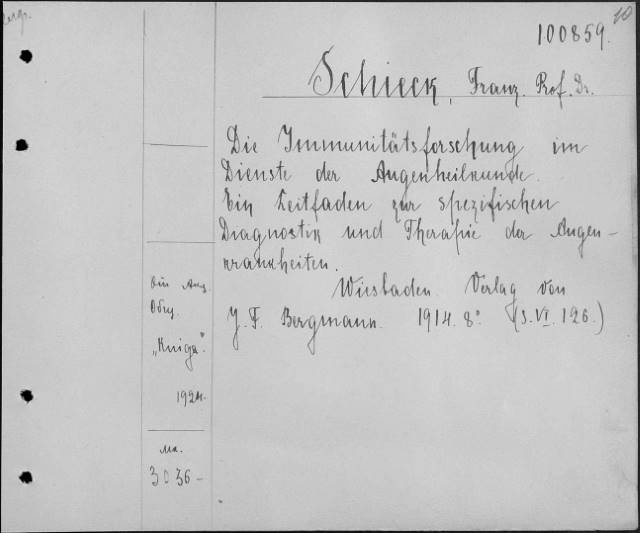 10
100859.
Schieck, Franz. Prof. Dr.
Die Immunitätsforschung im
Dienste der Augenheilkunde.
Ein Leitfaden zur spezifischen
Diagnostik und Therapie der Augen-
krankheiten.
Wiesbaden. Verlag von
J. F. Bergmann. 1914. 8° (S. VI. 126.)
"Kniga".
1924.
Ma.
3036-